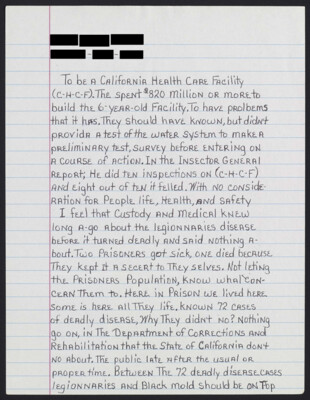 To be a California Health Care Facility
(C-H-C-F). The spent $820 Million or more to
build the 6-year-old Facility. To have prolbems
that it has. They should have known, but didn't
provida a test of the water System to make a
preliminary test, survey before entering on
a course of action. In the Insector General
Report; He did ten inspections on (C-H-C-F)
and eight out of ten it felled. With no conside-
ration for People life, Health, and Safety
I feel that Custody and Medical knew
long a-go about the legionnaries disease
before it turned deadly and said nothing a-
bout. Two Prisoners got sick, one died because
They kept it a secert to They selves. Not leting
the Prisoners Population, know what con-
cean Them to. Here in Prison we lived here
some is here all They life, known 72 cases
of deadly disease, Why They didn't no? Nothing
go on, in The Department of Corrections and
Rehabilitation that the State of California don't
no about. The public late after the usual or
proper time. Between The 72 deadly disease cases
legionnaries and Black mold should be on Top